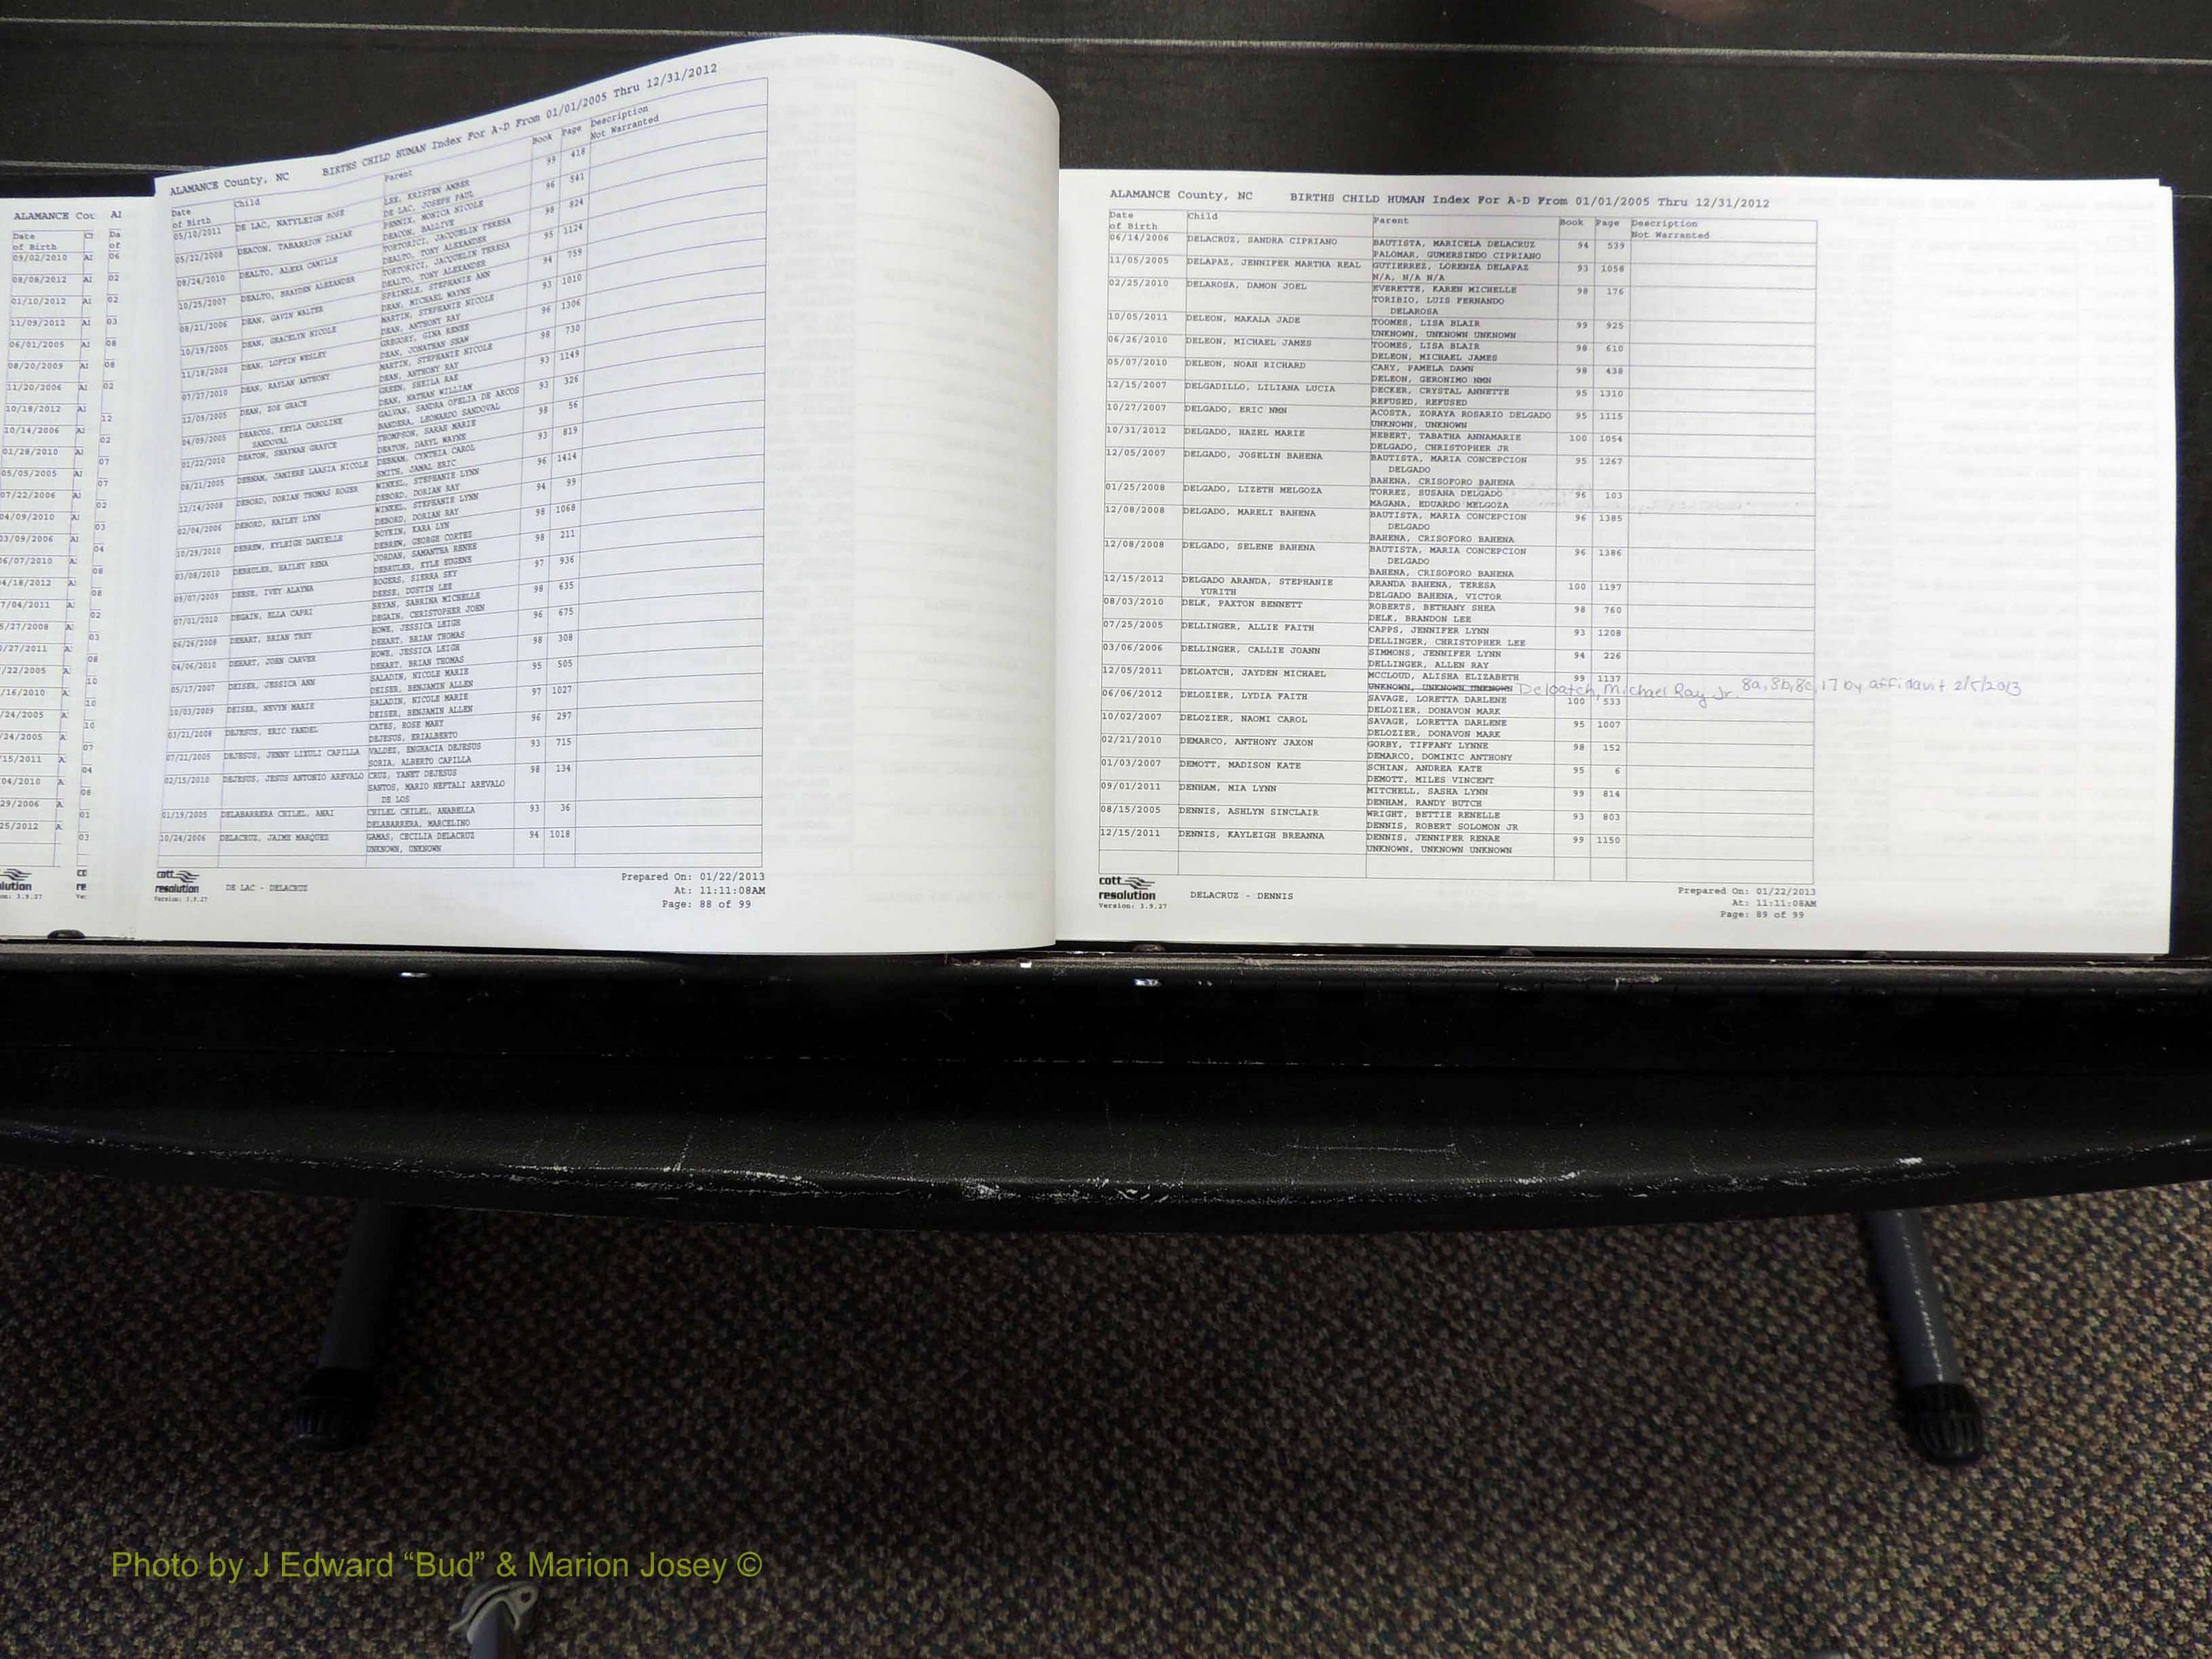 ALAMANCE Cou AI
Date C Da
of Birth of
09/02/2010 AI 06
08/08/2012 AI 02
01/10/2012 AI 02
11/09/2012 AI 03
06/01/2005 AI 08
08/20/2009 AI 08
11/20/2006 AI 02
10/18/2012 AI 12
10/14/2006 AI 02
01/28/2010 AI 07
05/05/2005 AI 07
07/22/2006 AI 02
04/09/2010 AI 03
03/09/2006 AI 04
ALAMANCE County, NC BIRTHS CHILD HUMAN Index For A-D From 01/01/2005 Thru 12/31/2012
Date Child Parent Book Page Description
of Birth Not Warranted
05/10/2011 DE LAC, NATYLEIGH ROSE LEE, KRISTEN AMBER 99 418
DE LAC, JOSEPH PAUL
05/22/2008 DEACON, TABARRION ISAIAH PENNIX, MONICA NICOLE 96 541
DEACON, BALLIVE
08/24/2010 DEALTO, ALEXA CAMILLE TORTORICI, JACQUELIN TERESA 98 824
DEALTO, TONY ALEXANDER
10/25/2007 DEALTO, BRAYDEN ALEXANDER TORTORICI, JACQUELIN TERESA 95 1124
DEALTO, TONY ALEXANDER
08/21/2006 DEAN, GAVIN WALTER SPRINKLE, STEPHANIE ANN 94 759
DEAN, MICHAEL WAYNE
10/19/2005 DEAN, GRACELYN NICOLE MARTIN, STEPHANIE NICOLE 93 1010
DEAN, ANTHONY RAY
11/18/2008 DEAN, LOFTIN WESLEY GREGORY, GINA RENEE 96 1306
DEAN, JONATHAN SHAW
07/27/2010 DEAN, RAYLAN ANTHONY MARTIN, STEPHANIE NICOLE 98 730
DEAN, ANTHONY RAY
12/09/2005 DEAN, ZOE GRACE GREEN, SHEILA RAE 93 1149
DEAN, NATHAN WILLIAM
04/09/2005 DEARCOS, KEYLA CAROLINE GALVAN, SANDRA OFELIA DE ARCOS 93 326
SANDOVAL BANDERA, LEONARDO SANDOVAL
01/22/2010 DEATON, SHAYNAH GRAYCE THOMPSON, SARAH MARIE 98 56
DEATON, DARYL WAYNE
08/21/2005 DEBNAM, JAMIERE LAASIA NICOLE DEBNAM, CYNTHIA CAROL 93 819
SMITH, JAMAL ERIC
12/14/2008 DEBORD, DORIAN THOMAS ROGER WINKEL, STEPHANIE LYNN 96 1414
DEBORD, DORIAN RAY
02/04/2006 DEBORD, HAILEY LYNN WINKEL, STEPHANIE LYNN 94 99
DEBORD, DORIAN RAY
10/29/2010 DEBREW, KYLEIGH DANIELLE BOYKIN, KARA LYN 98 1068
DEBREW, GEORGE CORTEZ
03/08/2010 DEBRULER, HAILEY RENA JORDAN, SAMANTHA RENEE 98 211
DEBRULER, KYLE EUGENE
09/07/2009 DEESE, IVEY ALAYNA ROGERS, SIERRA SKY 97 936
DEESE, DUSTIN LEE
07/01/2010 DEGAIN, ELLA CAPRI BRYAN, SABRINA MICHELLE 98 635
DEGAIN, CHRISTOPHER JOHN
06/26/2008 DEHART, BRIAN TREY HOWE, JESSICA LEIGH 96 675
DEHART, BRIAN THOMAS
04/06/2010 DEHART, JOHN CARVER HOWE, JESSICA LEIGH 98 308
DEHART, BRIAN THOMAS
05/17/2007 DEISER, JESSICA ANN SALADIN, NICOLE MARIE 95 505
DEISER, BENJAMIN ALLEN
10/03/2009 DEISER, NEVYN MARIE SALADIN, NICOLE MARIE 97 1027
DEISER, BENJAMIN ALLEN
03/21/2008 DEJESUS, ERIC YANDEL CATES, ROSE MARY 96 297
DEJESUS, ERIALBERTO
07/21/2005 DEJESUS, JENNY LIZULI CAPILLA VALDEZ, ENGRACIA DEJESUS 93 715
SORIA, ALBERTO CAPILLA
02/15/2010 DEJESUS, JESUS ANTONIO AREVALO CRUZ, YANET DEJESUS 98 134
SANTOS, MARIO NEFTALI AREVALO
DE LOS
01/19/2005 DELABARRERA CHILEL, ANAI CHILEL CHILEL, ANABELLA 93 36
DELABARRERA, MARCELINO
10/24/2006 DELACRUZ, JAIME MARQUEZ GAMAS, CECILIA DELACRUZ 94 1018
UNKNOWN, UNKNOWN
cott
resolution DE LAC - DELACRUZ
Version: 3.9.27
Prepared On: 01/22/2013
At: 11:11:08AM
Page: 88 of 99
ALAMANCE County, NC BIRTHS CHILD HUMAN Index For A-D From 01/01/2005 Thru 12/31/2012
Date Child Parent Book Page Description
of Birth Not Warranted
06/14/2006 DELACRUZ, SANDRA CIPRIANO BAUTISTA, MARICELA DELACRUZ 94 539
PALOMAR, GUMERSINDO CIPRIANO
11/05/2005 DELAPAZ, JENNIFER MARTHA REAL GUTIERREZ, LORENZA DELAPAZ 93 1058
N/A, N/A N/A
02/25/2010 DELAROSA, DAMON JOEL EVERETTE, KAREN MICHELLE 98 176
TORIBIO, LUIS FERNANDO
DELAROSA
10/05/2011 DELEON, MAKALA JADE TOOMES, LISA BLAIR 99 925
UNKNOWN, UNKNOWN UNKNOWN
06/26/2010 DELEON, MICHAEL JAMES TOOMES, LISA BLAIR 98 610
DELEON, MICHAEL JAMES
05/07/2010 DELEON, NOAH RICHARD CARY, PAMELA DAWN 98 438
DELEON, GERONIMO NMN
12/15/2007 DELGADILLO, LILIANA LUCIA DECKER, CRYSTAL ANNETTE 95 1310
REFUSED, REFUSED
10/27/2007 DELGADO, ERIC NMN ACOSTA, ZORAYA ROSARIO DELGADO 95 1115
UNKNOWN, UNKNOWN
10/31/2012 DELGADO, HAZEL MARIE HEBERT, TABATHA ANNAMARIE 100 1054
DELGADO, CHRISTOPHER JR
12/05/2007 DELGADO, JOSELIN BAHENA BAUTISTA, MARIA CONCEPCION 95 1267
DELGADO
BAHENA, CRISOFORO BAHENA
01/25/2008 DELGADO, LIZETH MELGOZA TORREZ, SUSANA DELGADO 96 103
MAGANA, EDUARDO MELGOZA
12/08/2008 DELGADO, MARELI BAHENA BAUTISTA, MARIA CONCEPCION 96 1385
DELGADO
BAHENA, CRISOFORO BAHENA
12/08/2008 DELGADO, SELENE BAHENA BAUTISTA, MARIA CONCEPCION 96 1386
DELGADO
BAHENA, CRISOFORO BAHENA
12/15/2012 DELGADO ARANDA, STEPHANIE ARANDA BAHENA, TERESA 100 1197
YURITH DELGADO BAHENA, VICTOR
08/03/2010 DELK, PAXTON BENNETT ROBERTS, BETHANY SHEA 98 760
DELK, BRANDON LEE
07/25/2005 DELLINGER, ALLIE FAITH CAPPS, JENNIFER LYNN 93 1208
DELLINGER, CHRISTOPHER LEE
03/06/2006 DELLINGER, CALLIE JOANN SIMMONS, JENNIFER LYNN 94 226
DELLINGER, ALLEN RAY
12/05/2011 DELOATCH, JAYDEN MICHAEL MCCLOUD, ALISHA ELIZABETH 99 1137
UNKNOWN, UNKNOWN UNKNOWN Deloatch, Michael Ray Jr. 8a, 8b, 8c, 17 by affidavit 2/5/2013
06/06/2012 DELOZIER, LYDIA FAITH SAVAGE, LORETTA DARLENE 100 533
DELOZIER, DONAVON MARK
10/02/2007 DELOZIER, NAOMI CAROL SAVAGE, LORETTA DARLENE 95 1007
DELOZIER, DONAVON MARK
02/21/2010 DEMARCO, ANTHONY JAXON GORBY, TIFFANY LYNNE 98 152
DEMARCO, DOMINIC ANTHONY
01/03/2007 DEMOTT, MADISON KATE SCHIAN, ANDREA KATE 95 6
DEMOTT, MILES VINCENT
09/01/2011 DENHAM, MIA LYNN MITCHELL, SASHA LYNN 99 814
DENHAM, RANDY BUTCH
08/15/2005 DENNIS, ASHLYN SINCLAIR WRIGHT, BETTIE RENELLE 93 803
DENNIS, ROBERT SOLOMON JR
12/15/2011 DENNIS, KAYLEIGH BREANNA DENNIS, JENNIFER RENAE 99 1150
UNKNOWN, UNKNOWN UNKNOWN
cott
resolution DELACRUZ - DENNIS
Version: 3.9.27
Prepared On: 01/22/2013
At: 11:11:08AM
Page: 89 of 99
Photo by J Edward “Bud” & Marion Josey ©